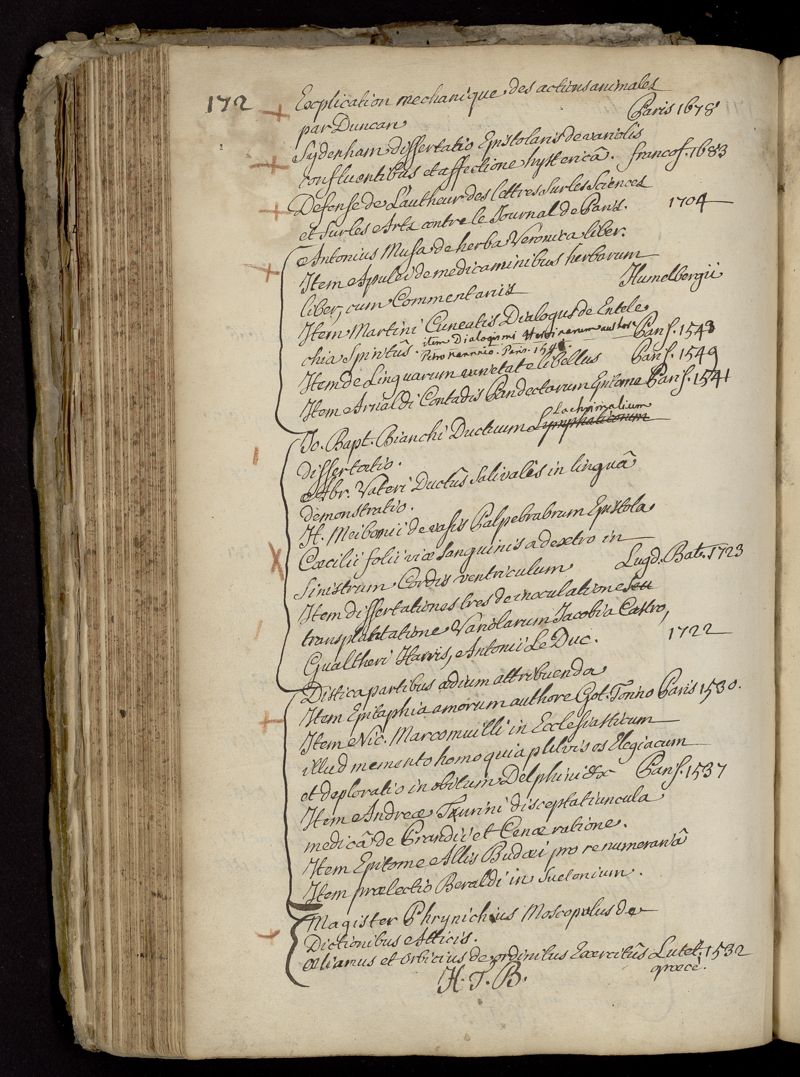 172
Explication mechanique des actions animales
par Duncan Paris 1678
Sydenham dissertatio Epistolaris de variolis
confluentibus et affectione hystericâ. francof. 1683
Defense de L'autheur des lettres Sur les Sciences
et Sur les Arts contre le Journal de Paris. 1704
Antonius Musa de herba Veronica liber.
Item Apulei de medicaminibus herbarum
liber, cum Commentariis Humelbergii
Item Martini Cuneatis Dialogus de Entele
chia Spiritûs. item Dialogismi Heroinarum authore Paris. 1543
Petro nannio. Paris. 1541.
Item de Linguarum varietate libellus Paris. 1549
Item Arnaldi Contadis Pandectarum Epitome Paris. 1541
Lachrimalium
Jo. Bapt. Bianchi Ductuum Lymphaticorum
dissertatio.
Abr. Vateri Ductûs Salivales in linguâ
demonstratio.
H. Meibomii de vasis Palpebrarum Epistola
Cæcilii folii viæ Sanguinis a dextro in
Sinistrum Cordis ventriculum Lugd. Bat. 1723
Item dissertationes tres de inoculatione Seu
transplantatione Variolarum Jacobi a Castro,
Gualtheri Harris, Antonii Le Duc. 1722
Distica partibus ædium attribuenda
Item Epitaphia amorum authore Got. Torino Paris 1530.
Item Nic. Marcomuilli in Ecclesiasticum
illud memento homo quia pulvis es Elegiacum
et deploratio in obitum Delphini &c Paris. 1537
Item Andreæ Turini disceptatiuncula
medicâ de Prandii et Cenæ ratione.
Item Epitome Assis Budæi pro re numerariâ
Item prælectio Beraldi in Suetonium.
Magister Phrynichius Moscopolus de
Dictionibus Atticis.
Ælianus et Orbicius de ordinibus Exercitûs Lutet. 1532
græcè.
H. T. B.